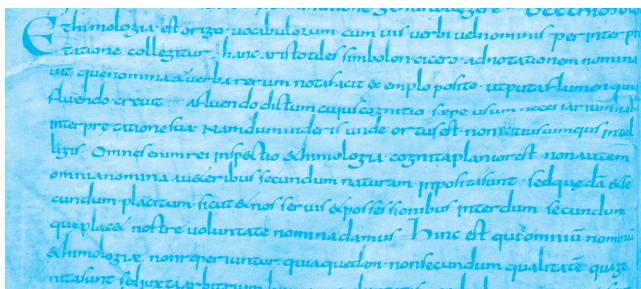 Ethimologia est origo vocabulorum cum uis verbi vel nominis per inter
tatione collegitur . hanc aristotiles simbolon cicero adnotationem nomina
uit que nomina & verba rerum nota facit & emplo posito . utputa flumen
fluendo creuit . a fluendo dictum cuius cognitio sæpe usum necessarium
interpretatione sua Nam dum uideris unde ortus est
legis . Omnis enim rei inspectio & himologia cognita planior est . non autem
omnia nomina aueteribus secundum naturam inposita sunt . sed quedā & se
cundum placitum sicut & nos seruis & possessionibus interdum secundum
que place& nostre uoluntate nomina damus . hinc est omniū nominū
& himologiæ non reperiuntur . quia quedam non secundum qualitatē quage
nita sunt sed iuxta arbitrium